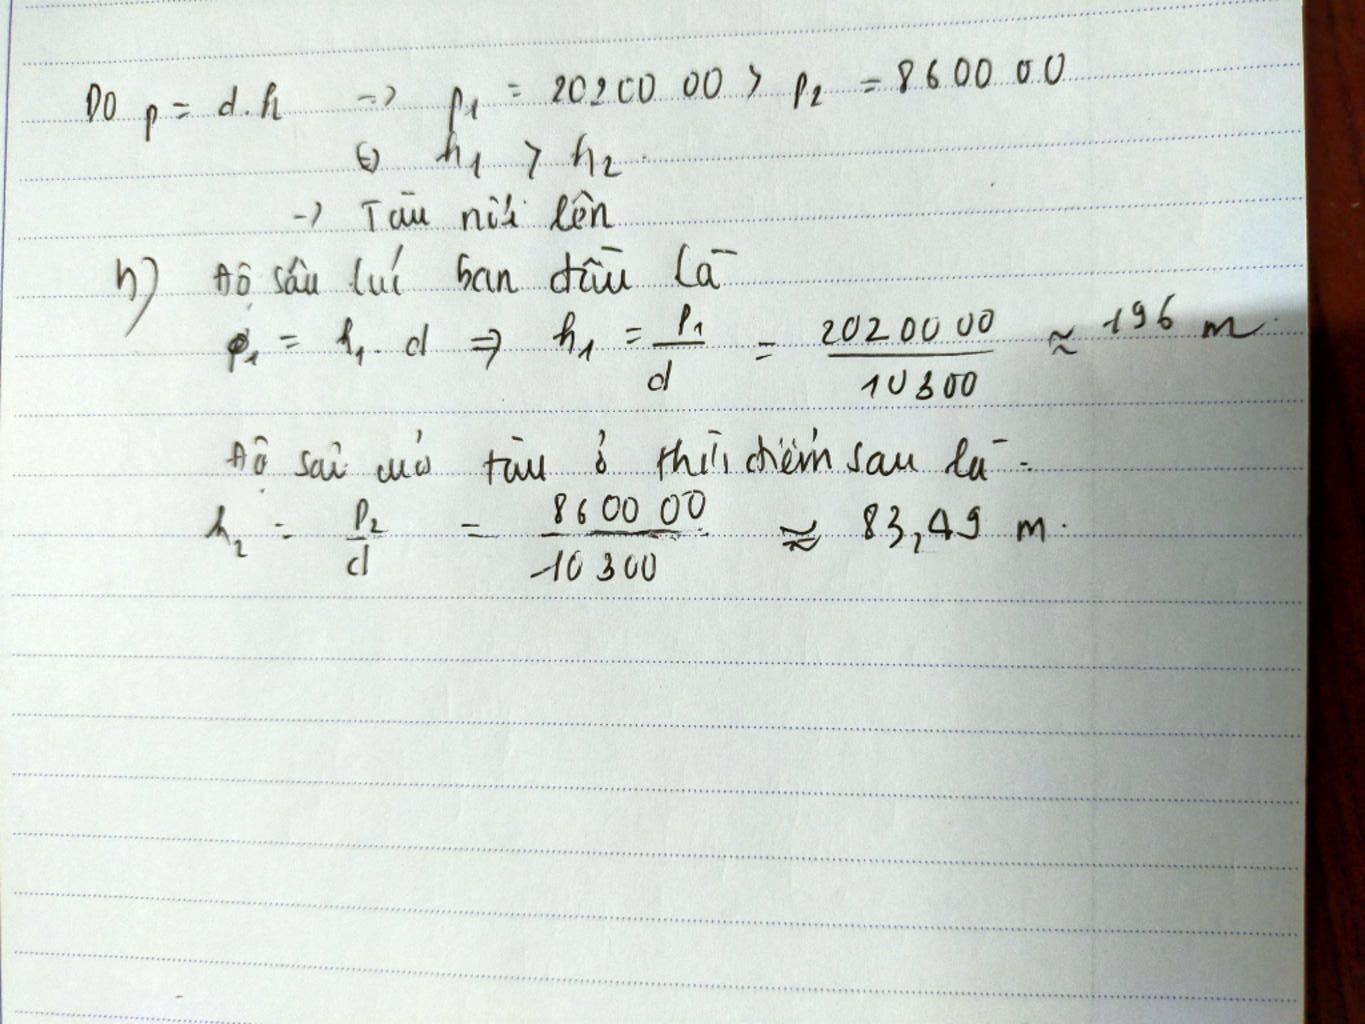 Do p = d.h -> p1 = 2020000 > p2 = 860000
<=> h1 > h2.
-> Tàu nổi lên
b) Độ sâu lúc ban đầu là
p1 = h1. d => h1 = p1/d = 2020000/10300 ≈ 196 m.
Độ sâu của tàu ở thời điểm sau là
h2 = p2/d = 860000/10300 ≈ 83,49 m.